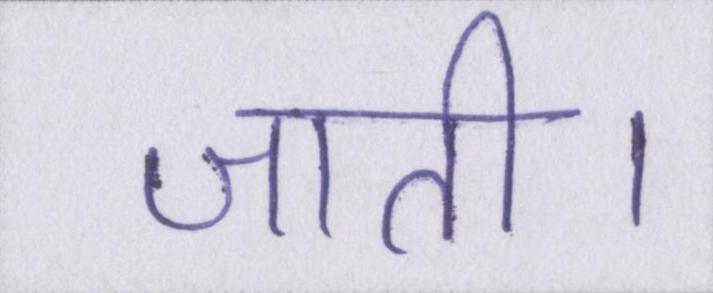 जाती।